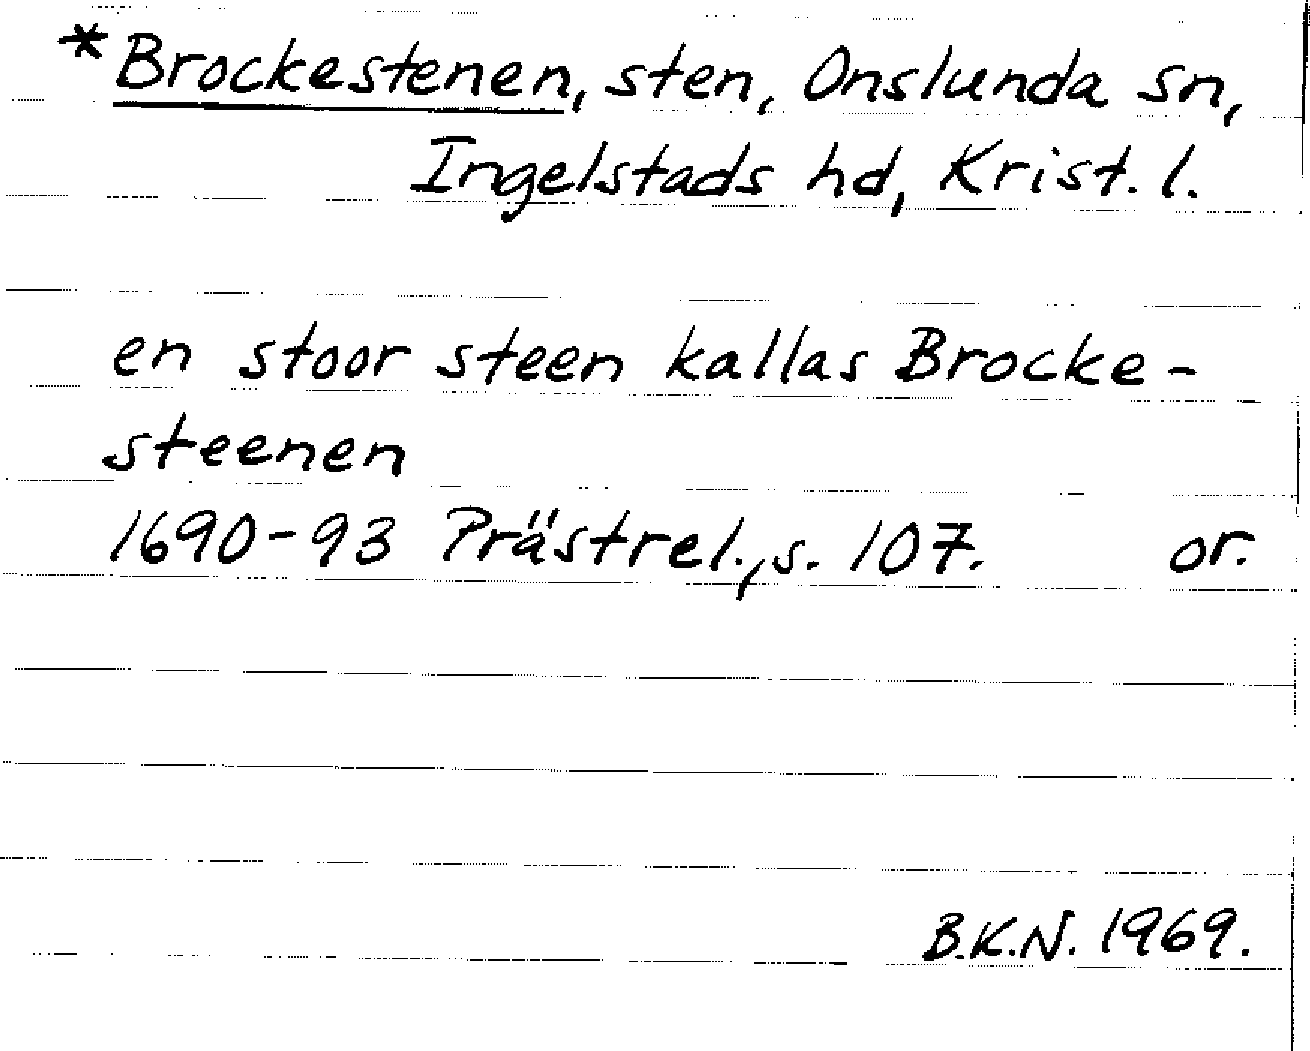 *Brockestenen, sten, Onslunda sn,
Ingelstads hd, Krist. l.
en stoor steen kallas Brocke-
steenen
1690-93 Prästrel., s. 107. or.
B.K.N. 1969.